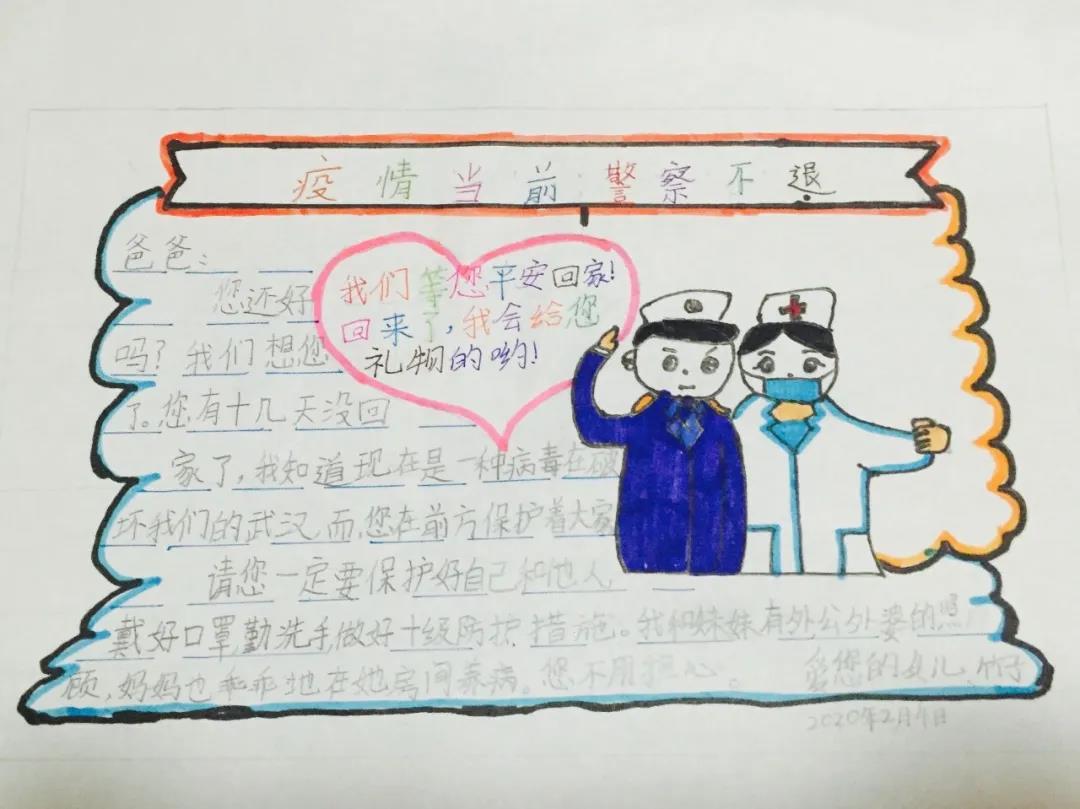 疫情当前 警察不退
爸爸：
您还好
吗？我们想您
了。您有十几天没回
家了，我知道现在是一种病毒在破
坏我们的武汉，而，您在前方保护着大家
请您一定要保护好自己和他人
戴好口罩，勤洗手，做好十级防护措施。我和妹妹有外公外婆的照
顾，妈妈也乖乖地在她房间养病。您不用担心。
爱您的女儿、竹子
2020年2月4日
我们等您平安回家！
回来了，我会给您
礼物的哟！